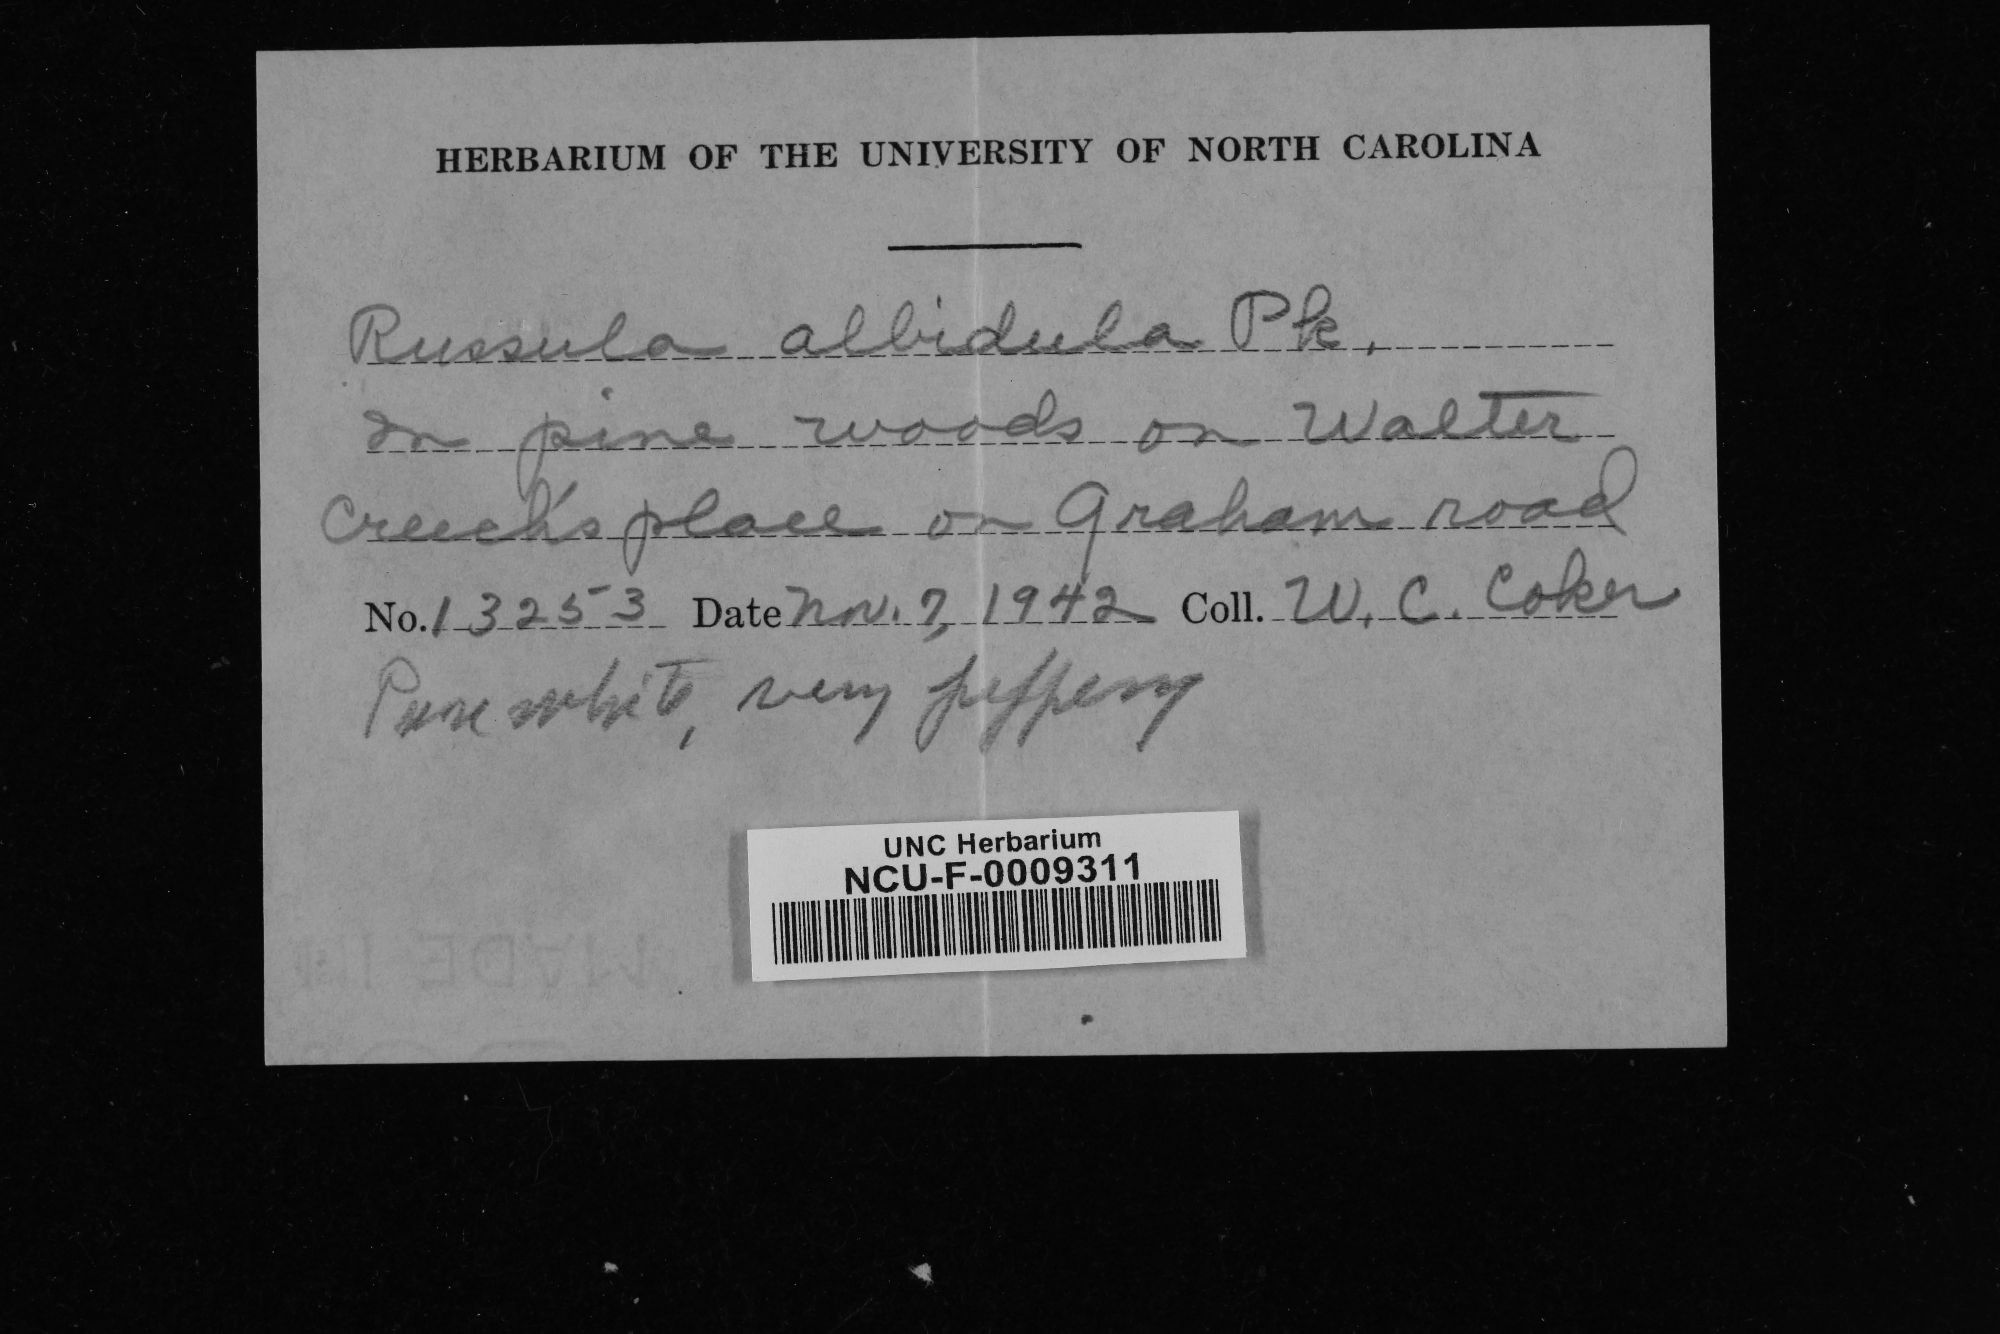 HERBARIUM OF THE UNIVERSITY OF NORTH CAROLINA
Russula albidula Pk.
In pine woods on Walter
Creech's place on Graham road
No. 13253 Date Nov. 7, 1942 Coll. W. C. Coker
Pure white, very peppery
UNC Herbarium
NCU-F-0009311
MADE IN